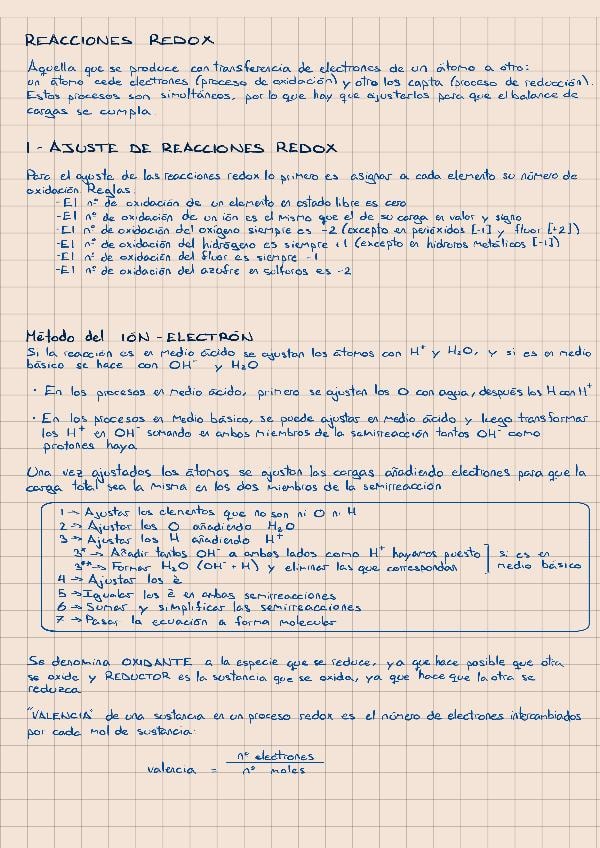 REACCIONES REDOX
Aquella que se produce con transferencia de electrones de un átomo a otro:
un átomo cede electrones (proceso de oxidación) y otro los capta (proceso de reducción).
Estos procesos son simultáneos, por lo que hay que ajustarlos para que el balance de
cargas se cumpla.
1 - AJUSTE DE REACCIONES REDOX
Para el ajuste de las reacciones redox lo primero es asignar a cada elemento su número de
oxidación. Reglas:
- El nº de oxidación de un elemento en estado libre es cero
- El nº de oxidación de un ión es el mismo que el de su carga en valor y signo
- El nº de oxidación del oxígeno siempre es -2 (excepto en peróxidos [-1] y fluor [+2])
- El nº de oxidación del hidrógeno es siempre +1 (excepto en hidruros metálicos [-1])
- El nº de oxidación del fluor es siempre -1
- El nº de oxidación del azufre en sulfuros es -2
Método del IÓN - ELECTRÓN
Si la reacción es en medio ácido se ajustan los átomos con H⁺ y H₂O, y si es en medio
básico se hace con OH⁻ y H₂O
· En los procesos en medio ácido, primero se ajustan los O con agua, después los H con H⁺
· En los procesos en medio básico, se puede ajustar en medio ácido y luego transformar
los H⁺ en OH⁻ sumando en ambos miembros de la semirreacción tantos OH⁻ como
protones haya
Una vez ajustados los átomos se ajustan las cargas añadiendo electrones para que la
carga total sea la misma en los dos miembros de la semirreacción
1 → Ajustar los elementos que no son ni O ni H
2 → Ajustar los O añadiendo H₂O
3 → Ajustar los H añadiendo H⁺
3* → Añadir tantos OH⁻ a ambos lados como H⁺ hayamos puesto
3** → Formar H₂O (OH⁻ + H) y eliminar las que correspondan
si es en
medio básico
4 → Ajustar los ē
5 → Igualar los ē en ambas semirreacciones
6 → Sumar y simplificar las semirreacciones
7 → Pasar la ecuación a forma molecular
Se denomina OXIDANTE a la especie que se reduce, ya que hace posible que otra
se oxide y REDUCTOR es la sustancia que se oxida, ya que hace que la otra se
reduzca
"VALENCIA" de una sustancia en un proceso redox es el número de electrones intercambiados
por cada mol de sustancia:
valencia = nº electrones / nº moles